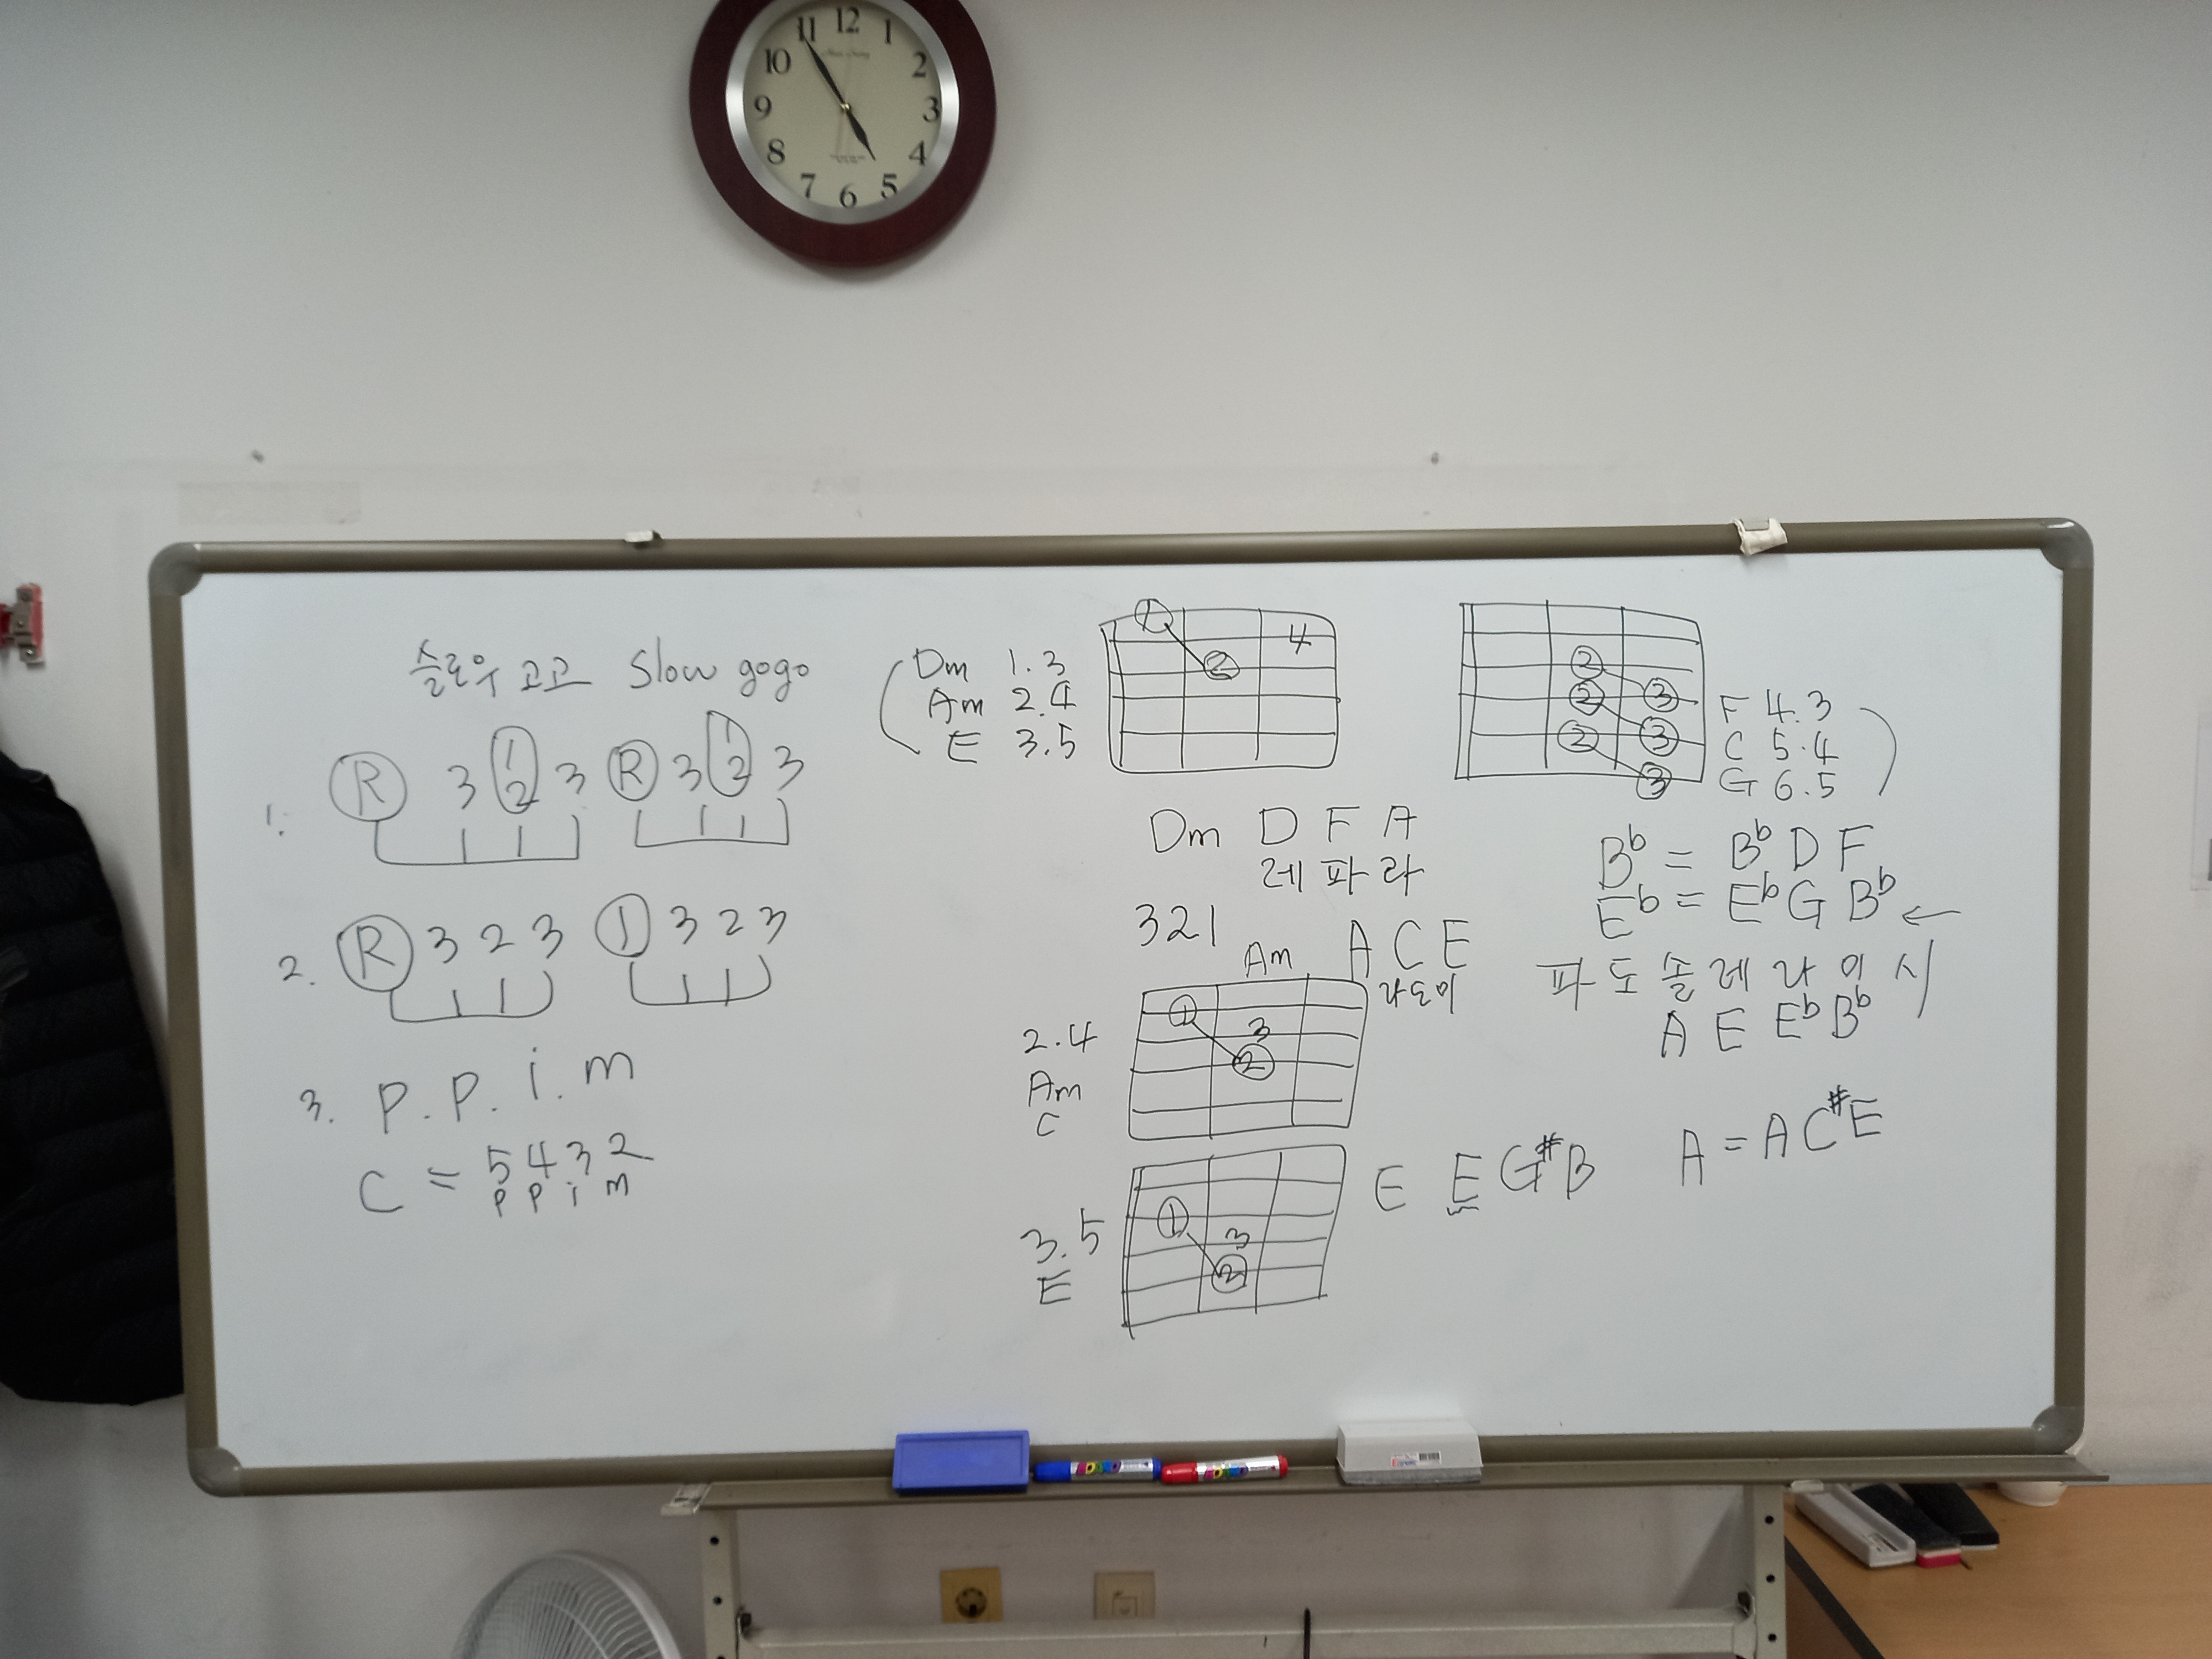 12
11 1
10 2
9 3
8 4
7 6 5
슬로우 고고 Slow gogo
1. R 3 1 2 3 R 3 1 2 3
2. R 3 2 3 1 3 2 3
3. P. P. i. m
C = 5 4 3 2
P P i m
Dm 1.3
Am 2.4
E 3.5
1 2 4
Dm D F A
레 파 라
3 2 1
Am A C E
라 도 미
2.4
Am
C
1 3 2
3.5
E
1 3 2
E E G# B
2 2 3 2 3 3
F 4.3
C 5.4
G 6.5
Bb = Bb D F
Eb = Eb G Bb ←
파 도 솔 레 라 미 시
A E Eb Bb
A = A C# E